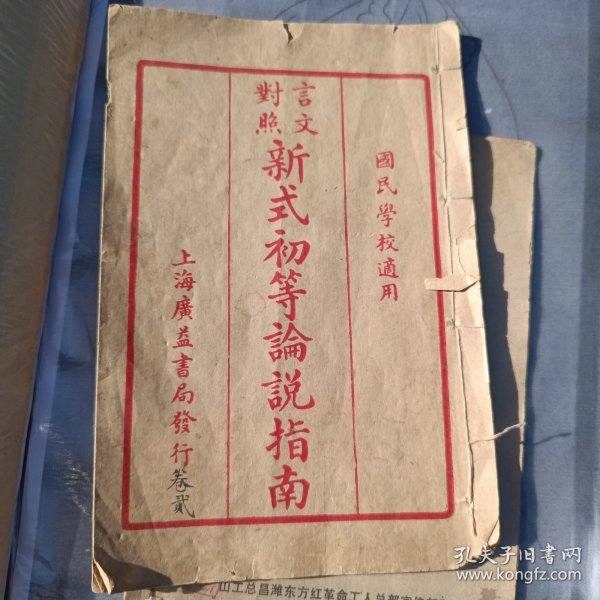 國民學校適用
言文
對照
新式初等論說指南
上海廣益書局發行
卷貳
山工总昌潍东方红革命工人总部宣传部
孔夫子旧书网
www.kongfz.com